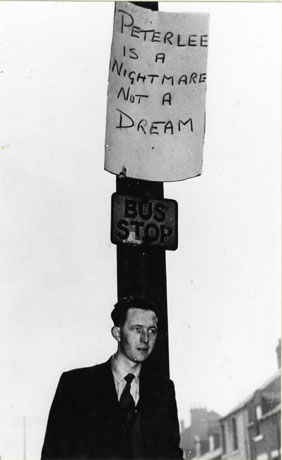 PETERLEE
IS A
NIGHTMARE
NOT A
DREAM
BUS
STOP